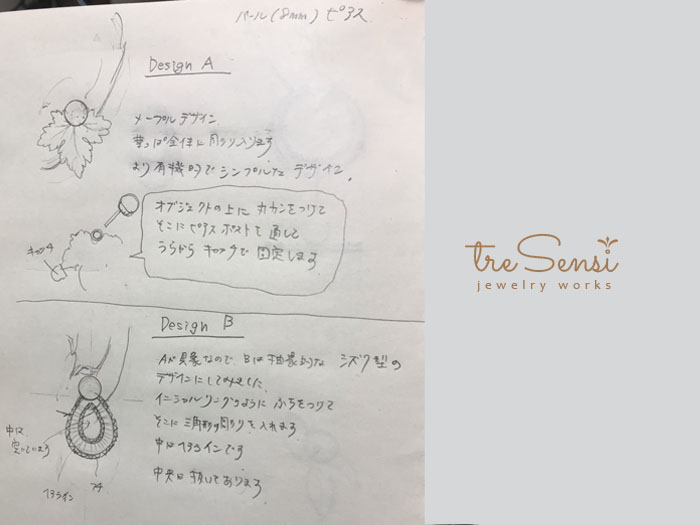 パール(8mm) ピアス
Design A
メープルデザイン
葉っぱ全体に彫りが入ります
より有機的でシンプルなデザイン。
オブジェクトの上に丸カンをつけて
そこにピアスポストを通して
うらから キャッチで固定します
キャッチ
Design B
Aが具象なので Bは抽象的な シズク型の
デザインにしてみました
イニシャルリングのように ふちをつけて
そこに三角形の彫りを入れます
中はヘラインです
中央は抜いてあります
中は
空いています
ヘライン
フチ
tre Sensi
jewelry works